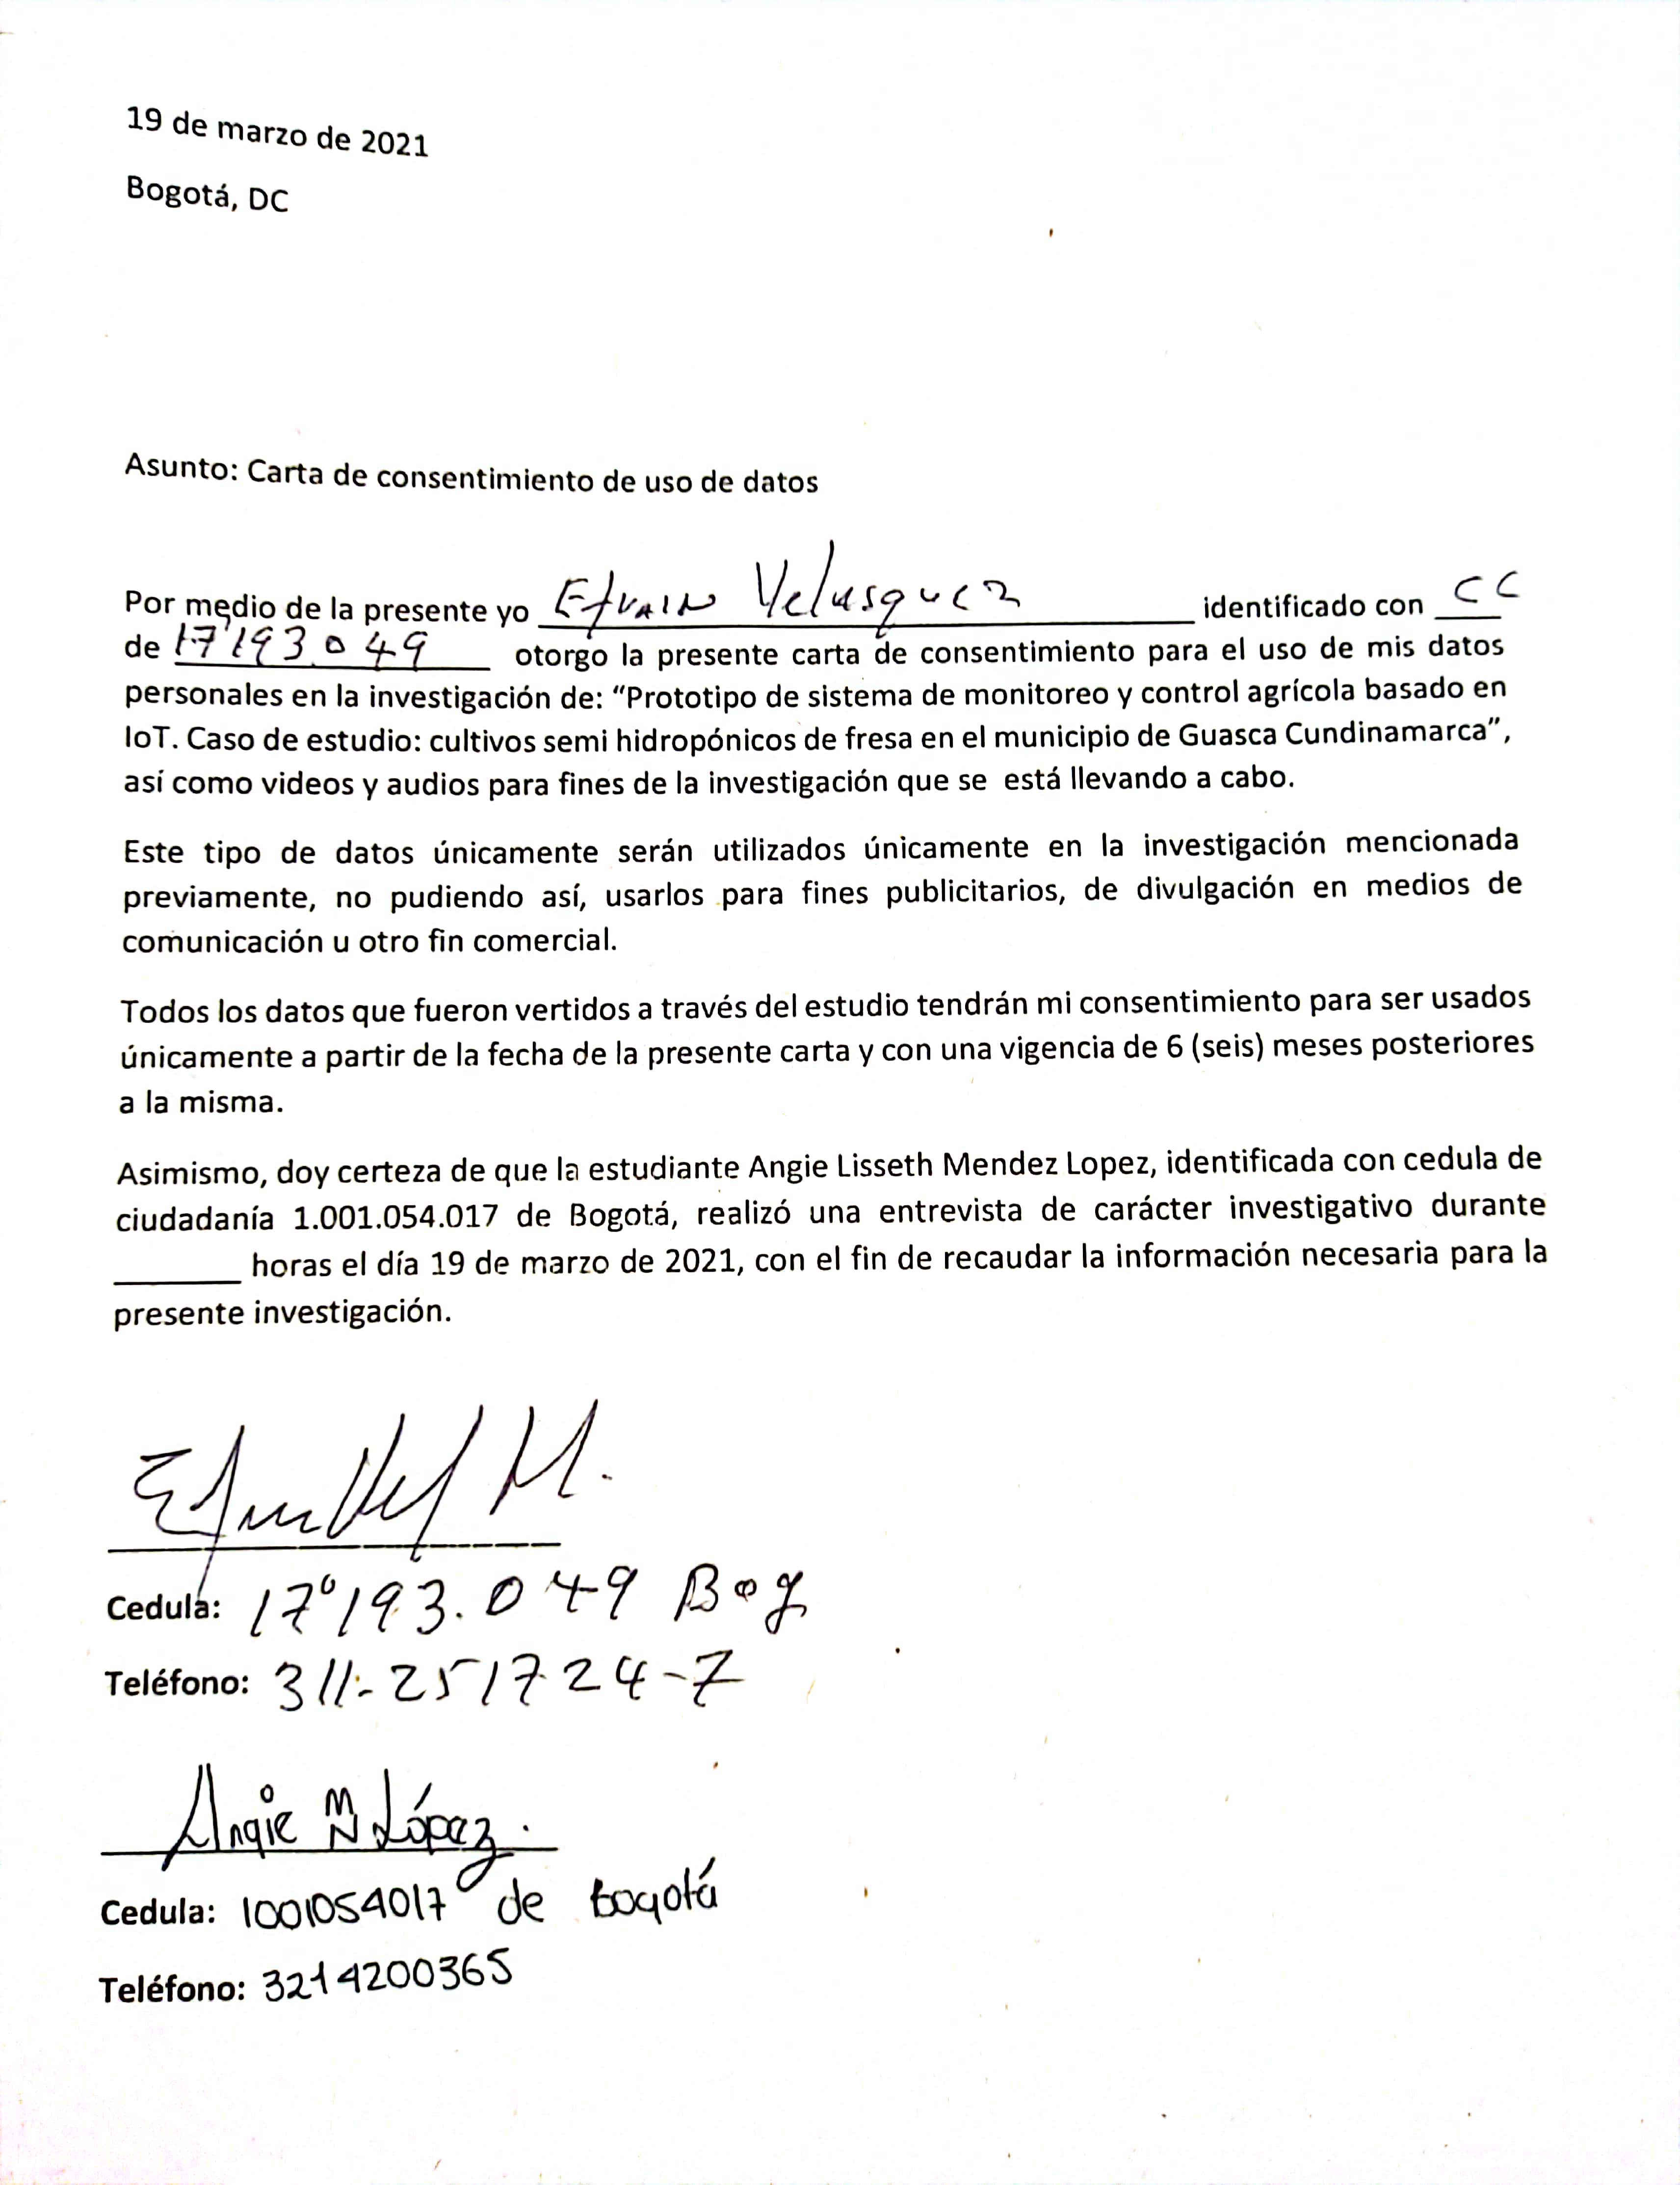 19 de marzo de 2021
Bogotá, DC
Asunto: Carta de consentimiento de uso de datos
Por medio de la presente yo Efrain Velasquez identificado con CC
de 17'193.049 otorgo la presente carta de consentimiento para el uso de mis datos
personales en la investigación de: “Prototipo de sistema de monitoreo y control agrícola basado en
IoT. Caso de estudio: cultivos semi hidropónicos de fresa en el municipio de Guasca Cundinamarca”,
así como videos y audios para fines de la investigación que se está llevando a cabo.
Este tipo de datos únicamente serán utilizados únicamente en la investigación mencionada
previamente, no pudiendo así, usarlos para fines publicitarios, de divulgación en medios de
comunicación u otro fin comercial.
Todos los datos que fueron vertidos a través del estudio tendrán mi consentimiento para ser usados
únicamente a partir de la fecha de la presente carta y con una vigencia de 6 (seis) meses posteriores
a la misma.
Asimismo, doy certeza de que la estudiante Angie Lisseth Mendez Lopez, identificada con cedula de
ciudadanía 1.001.054.017 de Bogotá, realizó una entrevista de carácter investigativo durante
_______ horas el día 19 de marzo de 2021, con el fin de recaudar la información necesaria para la
presente investigación.
Cedula: 17'193.049 Bog
Teléfono: 311-251724-7
Angie M López.
Cedula: 1001054017 de Bogotá
Teléfono: 3214200365